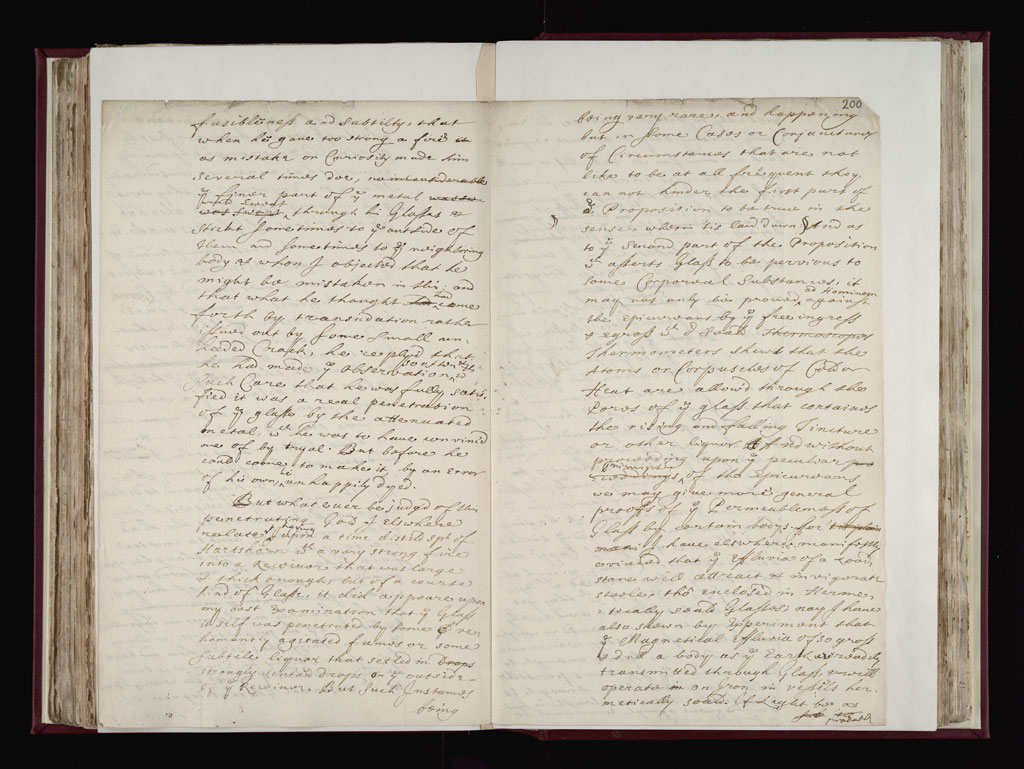 fusibleness and subtilty, that
when he gave too strong a fire
as mistake or Curiosity made him
several times doe, noinconsiderable
yͤ finer part of yͤ metal
was swept through his Glasses &
stick sometimes to yͤ outside of
them and sometimes to yͤ neighboring
body as whom I objected that he
might be mistaken in this; and
that what he thought had come
forth by transudation rather
issued out by some small un-
heeded Crack, he reply'd that
he had made yͤ observation
such Care that he was fully satis-
fied it was a real penetration
of yͤ glass by the attenuated
metal, wͨʰ he was to have convinc'd
me of by tryal. But before he
could come to make it, by an Error
of his own, he unhappily dyed.
But what ever be judgd of this
penetrating Gold yͭ elsewhere
relate, having upon a time distil'd spt. of
Hartshorn wͭʰ a very strong fire
into a Receiver that was large
& thick enough, but of a course
kind of Glass; it did appeare upon
my best Examination that yͤ Glass
it self was penetrated by some ve-
hemently agitated fumes or some
subtile liquor that setled in Drops
strongly sented drops on yͤ outside
of yͤ Receiver. But such Instances
being
200
being very rare, and happening
but in some Cases or Conjunctures
of Circumstances that are not
like to be at all frequent they
can not hinder the first part of
yͤ Proposition to be true in the
sense, wherin tis laid down. And as
to yͤ Second part of the Proposition
wͨʰ asserts Glass to be pervious to
some Corporeal Substances, it
may not only be proved ad Hominem against
the epicureans by yͤ free ingress
& egress wͨʰ Seal'd Thermoscopes
Thermometers shews that the
Atoms or Corpuscles of Cold or
Heat are allow'd through the
Pores of yͤ glass that contains
the rising and falling Tincture
or other liquor. And without
proceeding upon yͤ peculiar
principles of the Epicureans
we may give more general
proofs of yͤ Permeableness of
Glass by certain bodys, for
I have elsewhere manifestly
evinced that yͤ Effluvia of a Load-
stone will attract & invigorate
steele, tho' enclosed in Herme-
tically seald Glasses; nay I have
also shewn by Experiment that
yͤ Magnetical Effluvia of so gross
& dul a body as yͤ Earth are readily
transmitted through Glass, & will
operate on Iron in vessels her-
metically seald. If Light be as
probable